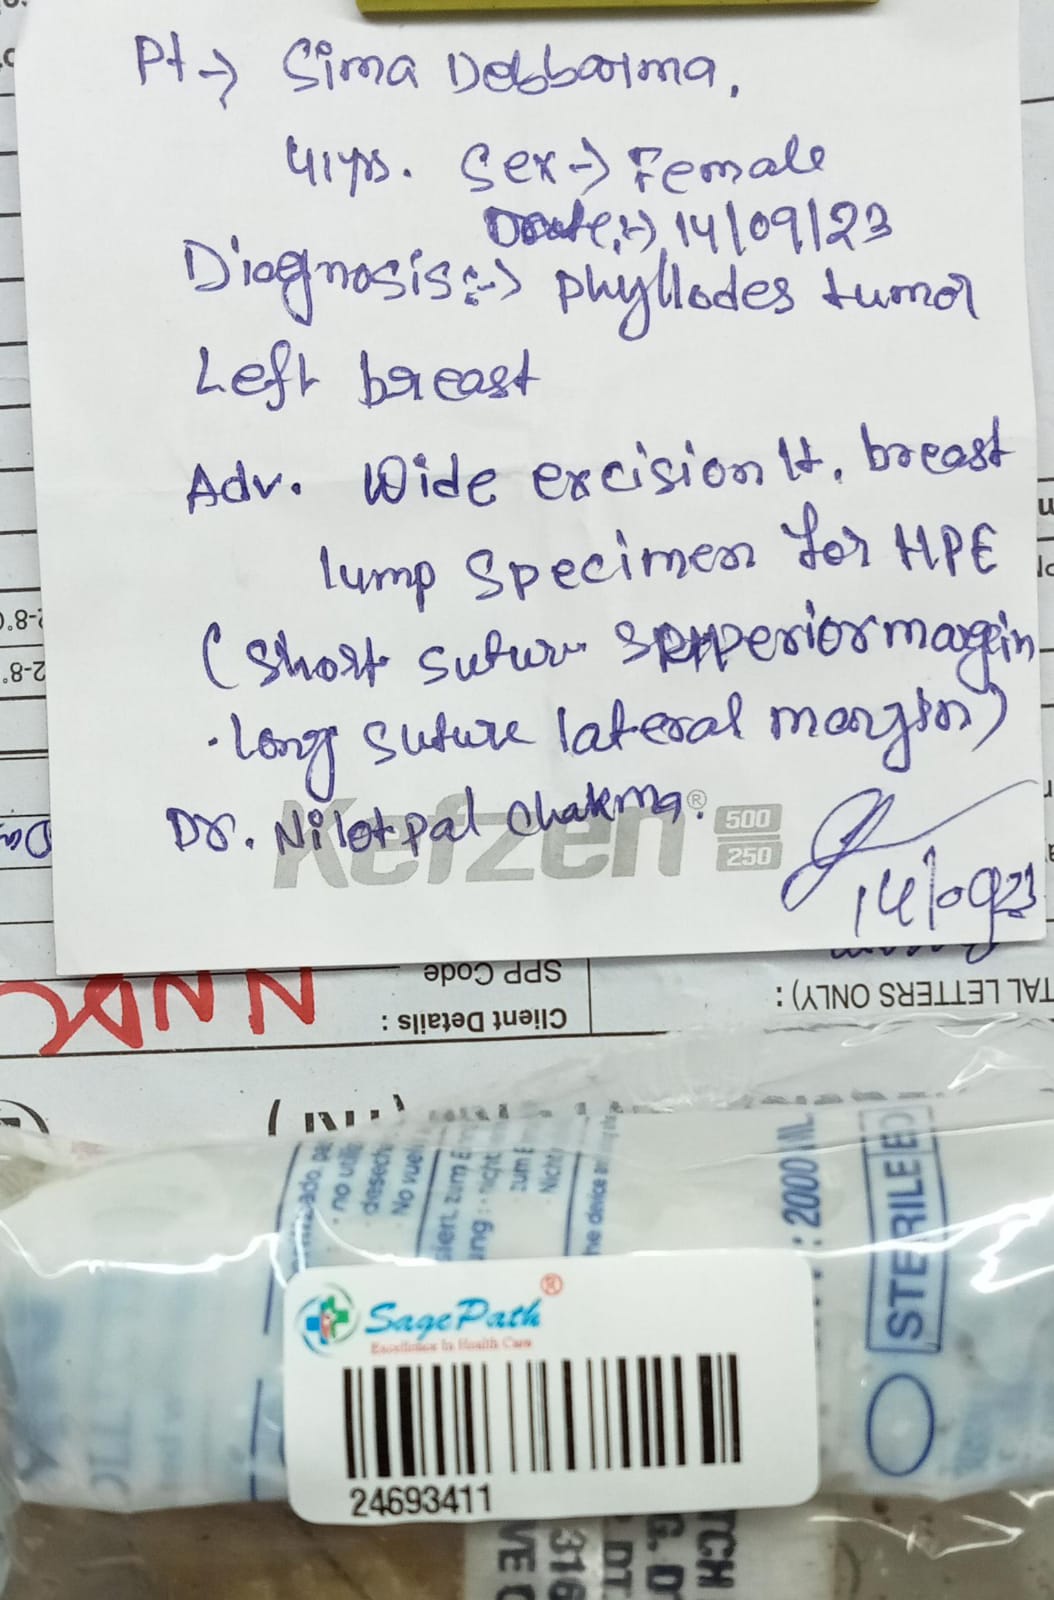 Pt → Sima Debbarma,
41yrs. Sex → Female
Date:→ 14/09/23
Diagnosis:→ Phyllodes tumor
Left breast
Adv. Wide excision lt. breast
lump specimen for HPE
(short suture superior margin
long suture lateral margin)
Dr. Nilotpal Chakma.
Kefzen®
500
250
14/09/23
SPP Code
Client Details :
TAL LETTERS ONLY) :
no utili
desech
No vuel
zum E
Nicht
: 2000 ML
STERILE EO
SagePath®
Excellence In Health Care
24693411
TCH
G. D
. DT.
316
VE